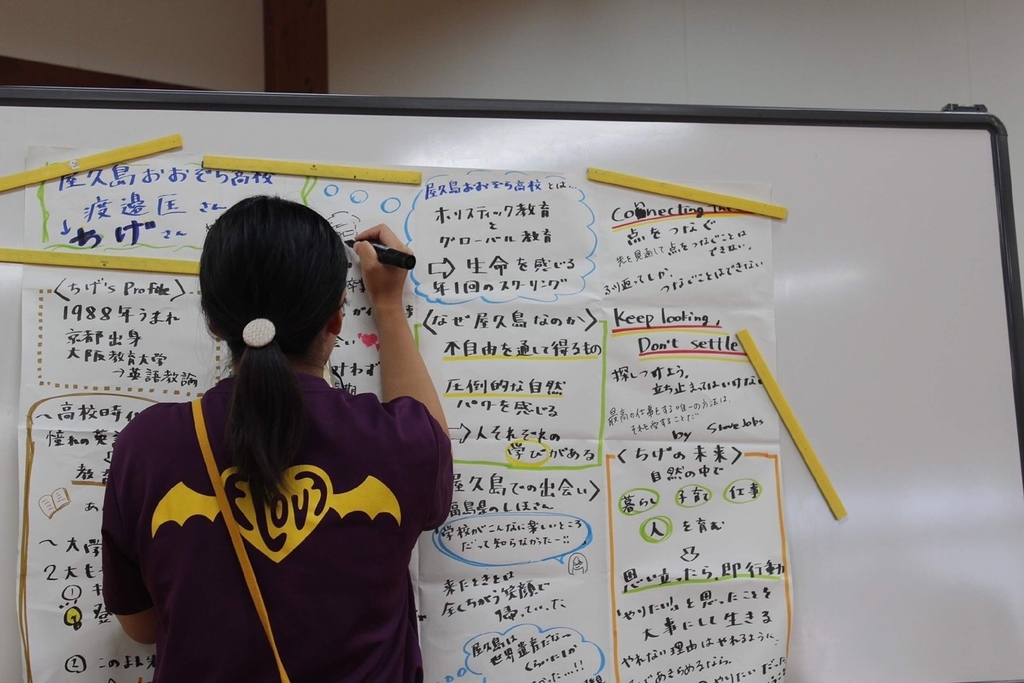 屋久島おおぞら高校
渡邉匡さん
↓
ちげさん
〈ちげ's Profile〉
1988年うまれ
京都出身
大阪教育大学
→英語教諭
〜高校時代
憧れの英語
〜大学
2大も
①
②このまま
屋久島おおぞら高校とは…
ホリスティック教育
と
グローバル教育
⇨生命を感じる
年1回のスクーリング
〈なぜ屋久島なのか〉
不自由を通して得るもの
圧倒的な自然
パワーを感じる
→人それぞれの
学びがある
屋久島での出会い〉
福島県のしほさん
学校がこんなに楽しいところ
だって知らなかったー!!
来たときとは
全くちがう笑顔で
帰っていった
屋久島は
世界遺産だな〜
くらいだったが…!!
Connecting the
点をつなぐ
先を見通して点をつなぐことは
できない。
ふり返ってしか、
つなぐことはできない
Keep looking,
Don't settle
探しつづけよう。
立ち止まってはいけない
最高の仕事をする唯一の方法は、
それを愛することだ
by Steve Jobs
〈ちげの未来〉
自然の中で
暮らし 子育て 仕事
人を育む
思い立ったら、即行動
「やりたい」と思ったことを
大事にして生きる
やれない理由はやれるように、
あきらめるなら。
やりたいだった
LOVE